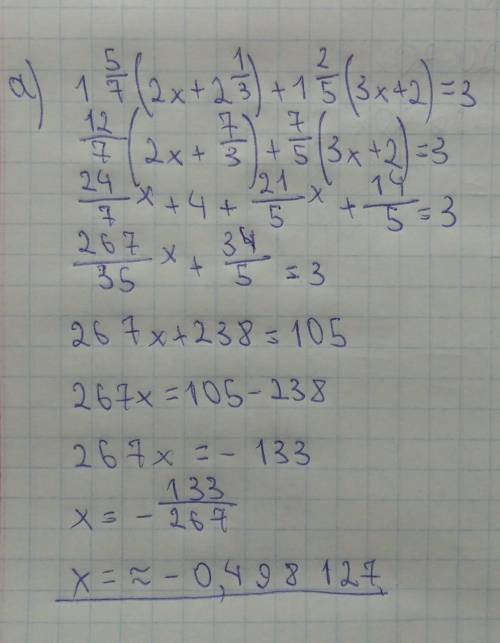 a) 1 5/7 (2x + 2 1/3) + 1 2/5 (3x + 2) = 3
12/7 (2x + 7/3) + 7/5 (3x + 2) = 3
24/7 x + 4 + 21/5 x + 14/5 = 3
267/35 x + 34/5 = 3
267x + 238 = 105
267x = 105 - 238
267x = - 133
x = - 133/267
x = ≈ - 0,498127